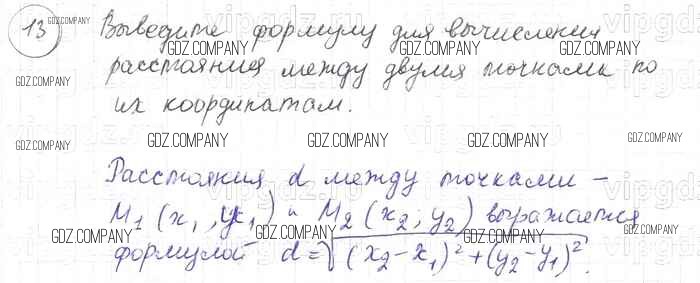 13 Выведите формулу для вычисления
расстояния между двумя точками по
их координатам.
Расстояния d между точками –
M₁ (x₁; y₁) и M₂ (x₂; y₂) выражается
формулой d = √(x₂ – x₁)² + (y₂ – y₁)².
GDZ.COMPANY
GDZ.COMPANY
GDZ.COMPANY
GDZ.COMPANY
GDZ.COMPANY
GDZ.COMPANY
GDZ.COMPANY
GDZ.COMPANY
GDZ.COMPANY
GDZ.COMPANY
GDZ.COMPANY
GDZ.COMPANY
GDZ.COMPANY
GDZ.COMPANY